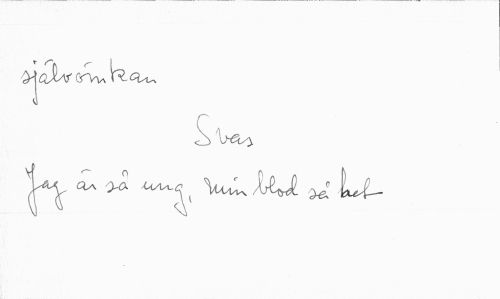 självömkan
Svas
Jag är så ung, min blod så het